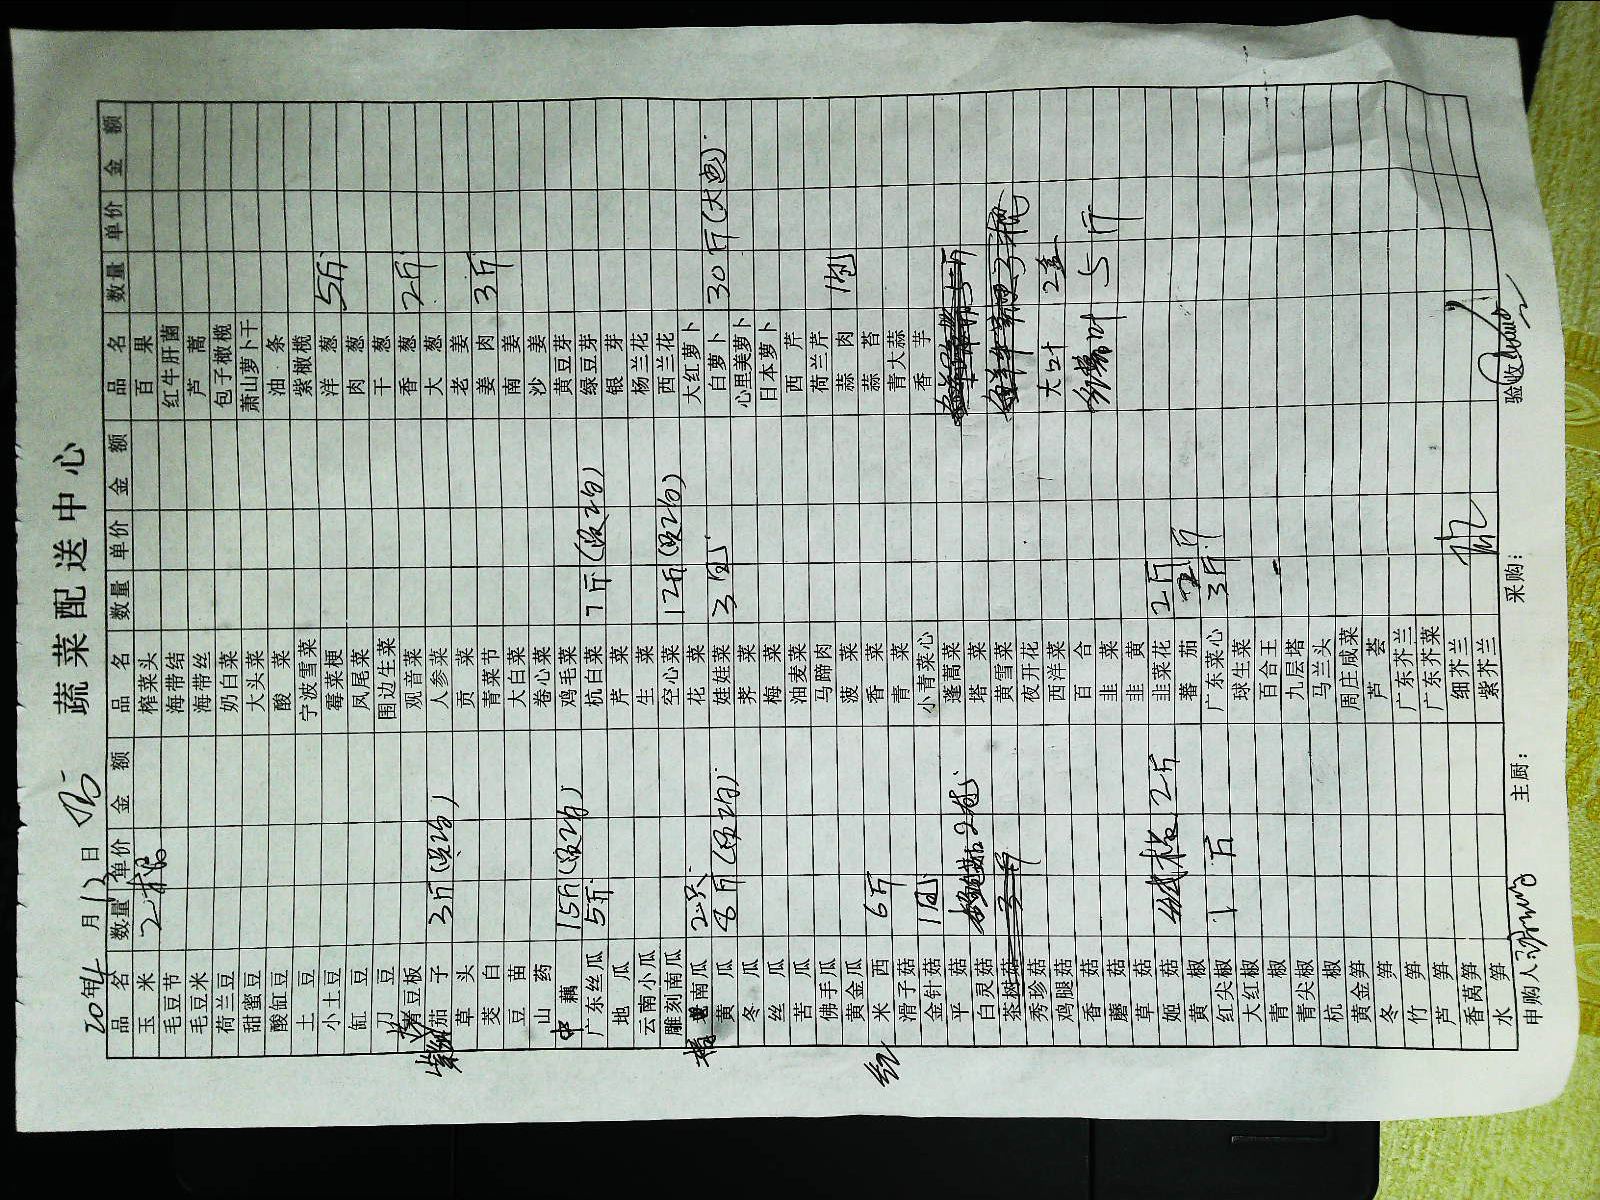 蔬菜配送中心
20年 月12日
品名 数量 单价 金额 品名 数量 单价 金额 品名 数量 单价 金额
玉米 榨菜头 百果
毛豆节 海带结 红牛肝菌
毛豆米 海带丝 芦蒿
荷兰豆 奶白菜 包子橄榄
甜蜜豆 大头菜 萧山萝卜干
酸缸豆 酸菜 油条
土豆 宁波雪菜 紫橄榄
小土豆 霉菜梗 洋葱 5斤
缸豆 凤尾菜 肉葱
刀豆 围边生菜 干葱
青豆板 观音菜 香葱 2斤
茄子 3斤 人参菜 大葱
草头 贡菜 老姜 3斤
茭白 青菜节 姜肉
豆苗 大白菜 南姜
山药 卷心菜 沙姜
中藕 15斤 鸡毛菜 黄豆芽
广东丝瓜 5斤 杭白菜 7斤 绿豆芽
地瓜 芹菜 银芽
云南小瓜 生菜 杨兰花
雕刻南瓜 空心菜 12斤 西兰花
南瓜 2只 花菜 大红萝卜
黄瓜 8斤 娃娃菜 3包 白萝卜 30斤
冬瓜 荠菜 心里美萝卜
丝瓜 梅菜 日本萝卜
苦瓜 油麦菜 西芹
佛手瓜 马蹄肉 荷兰芹
黄金瓜 菠菜 蒜肉 1包
红米西 6斤 香菜 蒜苔
滑子菇 青菜 青大蒜
金针菇 1包 小青菜心 香芋
平菇 蓬蒿菜
白灵菇 塔菜
茶树菇 3斤 黄雪菜
秀珍菇 夜开花
鸡腿菇 西洋菜 大叶 2盒
香菇 百合
蘑菇 韭菜 5斤
草菇 韭黄
姬菇 2斤 韭菜花 2斤
黄椒 蕃茄
红尖椒 1斤 广东菜心 3斤
大红椒 球生菜
青椒 百合王
青尖椒 九层塔
杭椒 马兰头
黄金笋 周庄咸菜
冬笋 芦荟
竹笋 广东芥兰
芦笋 广东芥菜
香莴笋 细芥兰
水笋 紫芥兰
申购人: 主厨: 采购: 验收: